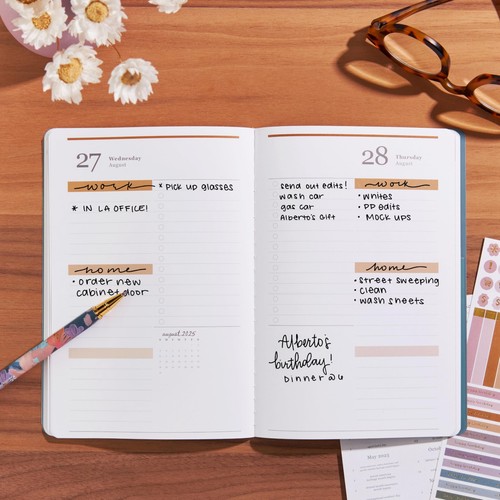 27 Wednesday
August
work
* IN LA OFFICE!
home
• order new
cabinet door
* PICK UP glasses
august 2025
28 Thursday
August
send out edits!
wash car
gas car
Alberto's Gift
Alberto's
birthday!
Dinner @ 6
work
• Whites
• PP Edits
• MOCK UPS
home
• street sweeping
• clean
• wash sheets